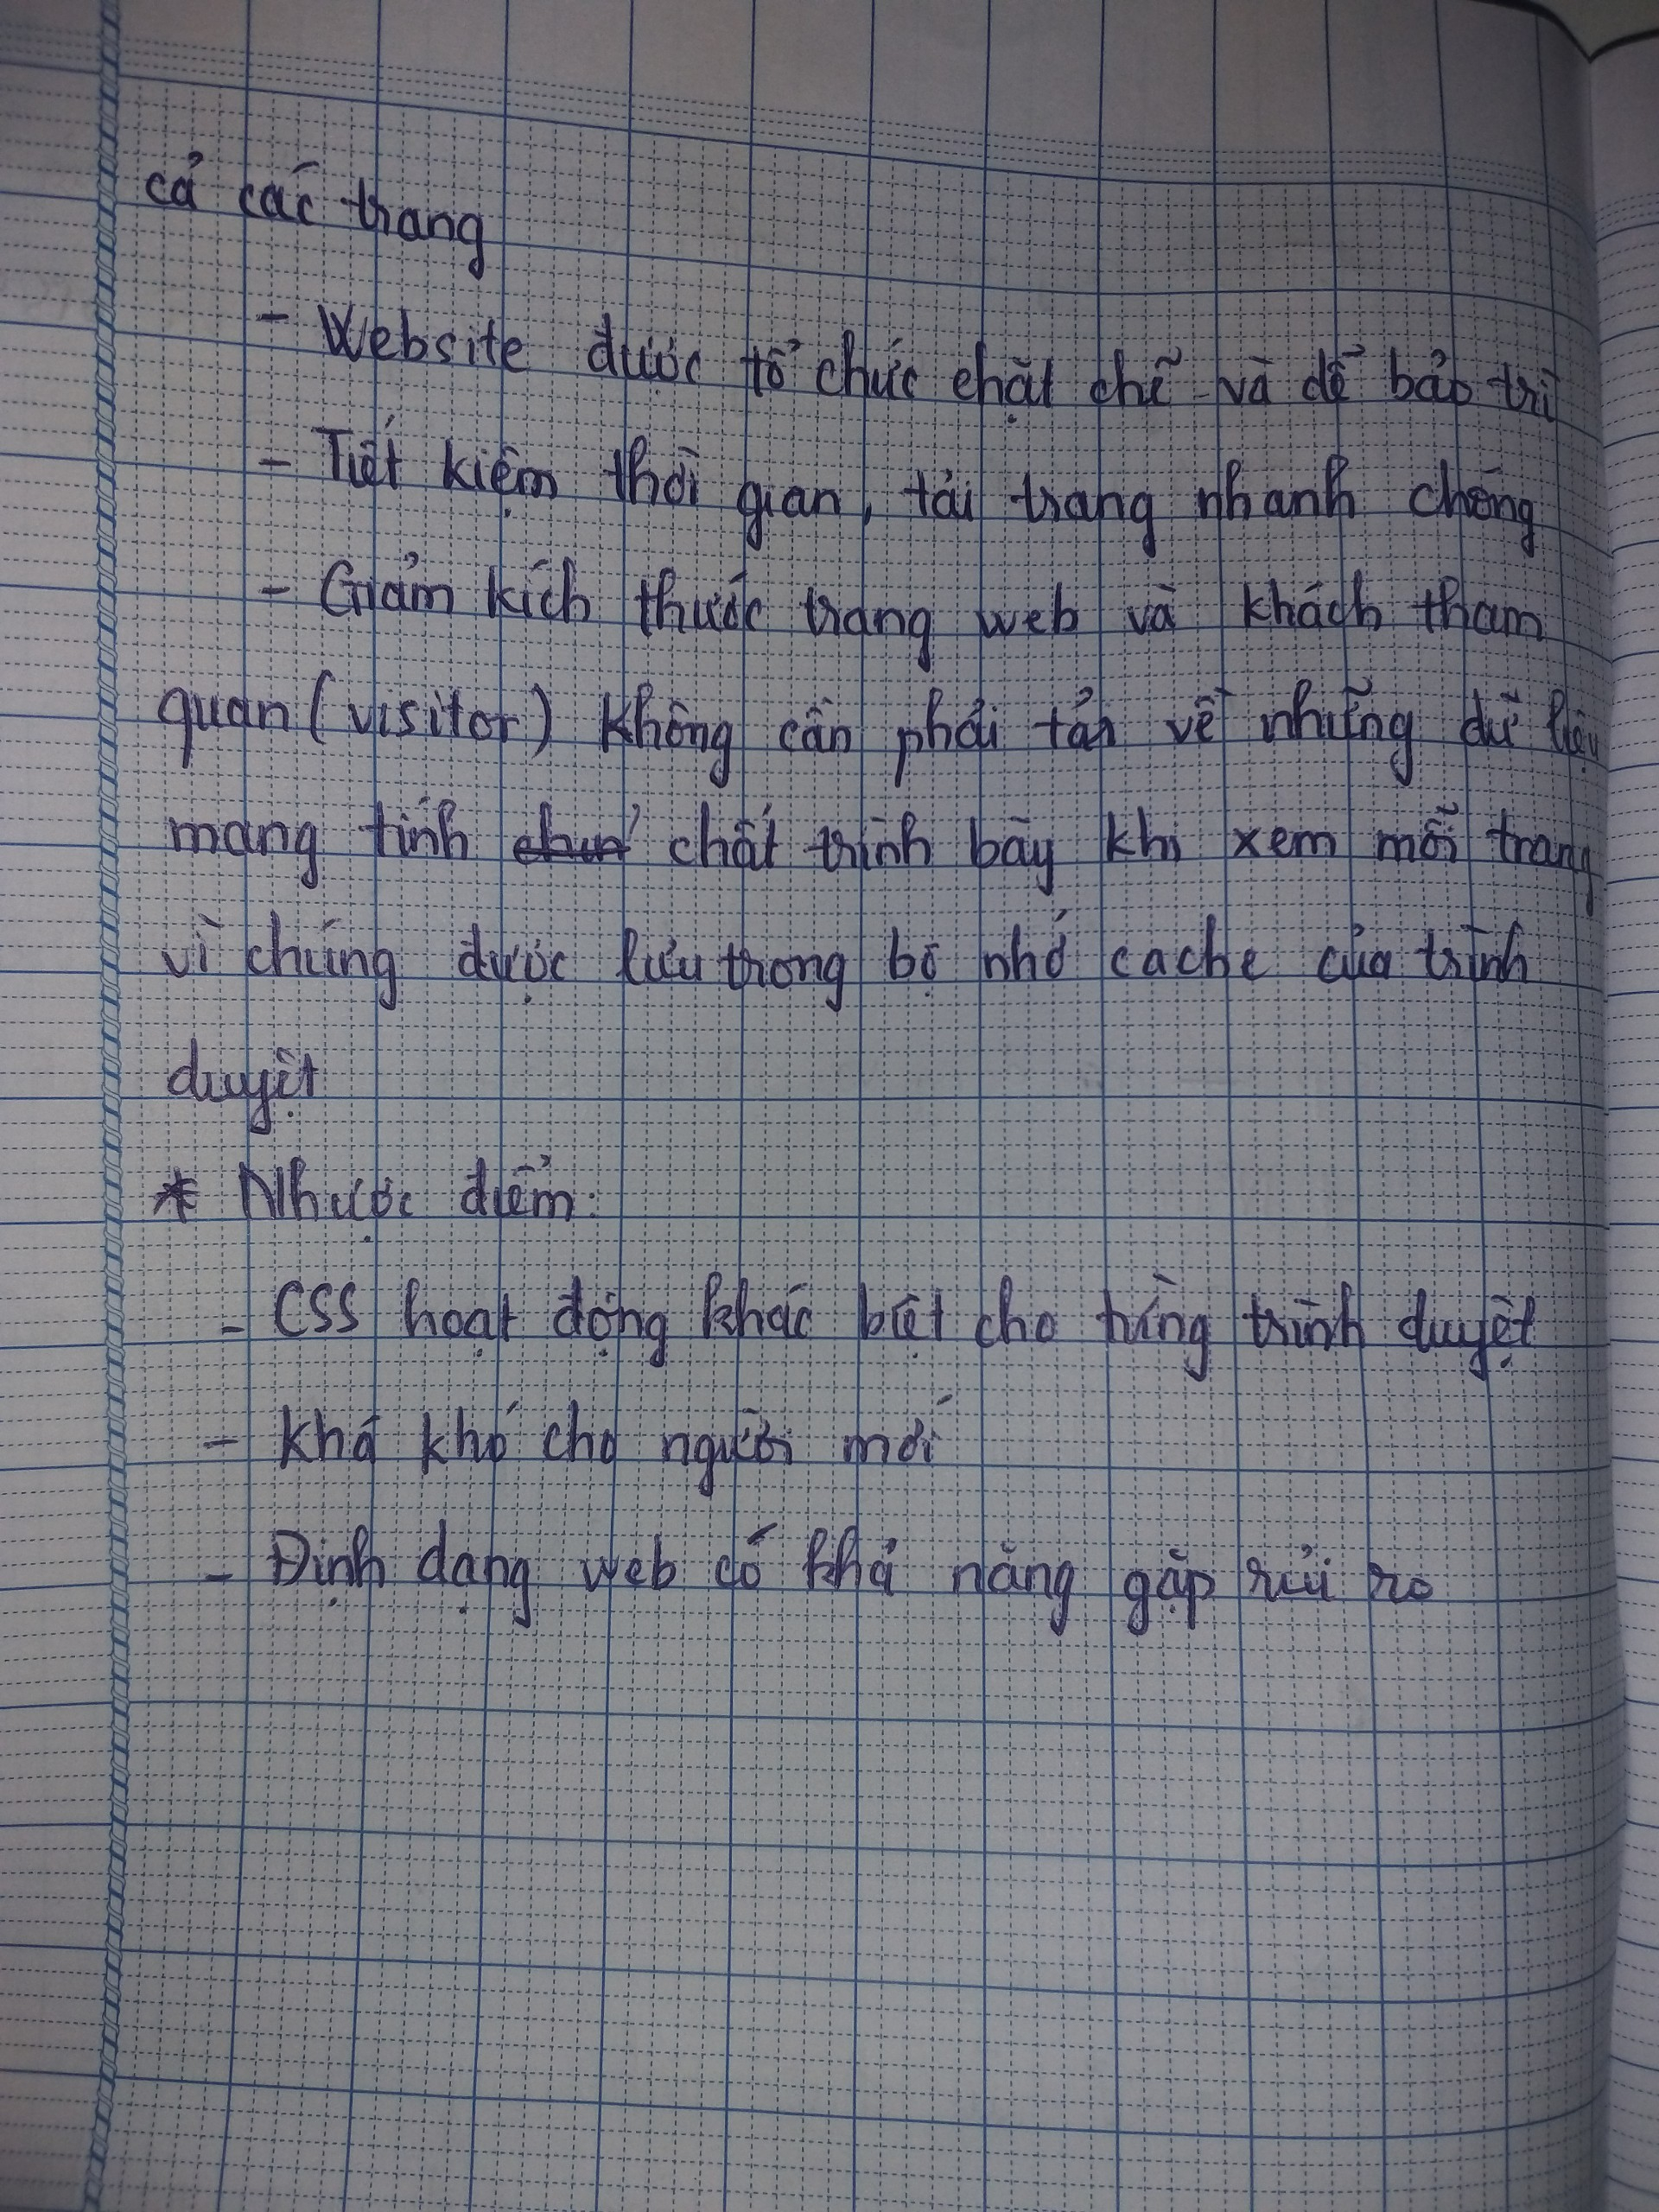 cả các trang
- Website được tổ chức chặt chẽ và dễ bảo trì
- Tiết kiệm thời gian, tải trang nhanh chóng
- Giảm kích thước trang web và khách tham
quan (visitor) không cần phải tải về những dữ liệu
mang tính chất trình bày khi xem mỗi trang
vì chúng được lưu trong bộ nhớ cache của trình
duyệt
* Nhược điểm:
- CSS hoạt động khác biệt cho từng trình duyệt
- Khá khó cho người mới
- Định dạng web có khả năng gặp rủi ro